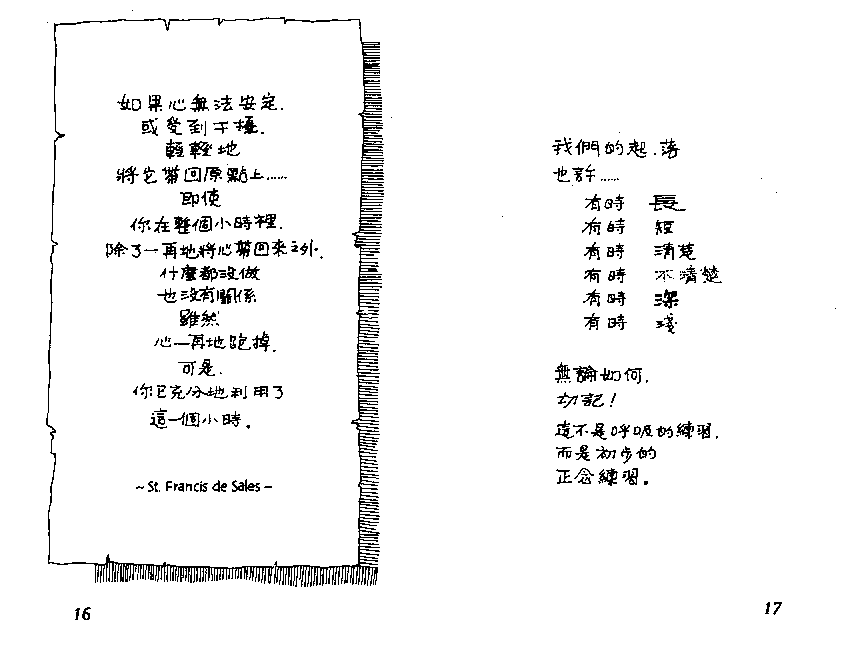 如果心無法安定，
或受到干擾，
輕輕地
將它帶回原點上……
即使
你在整個小時裡，
除了一再地將心帶回來之外，
什麼都沒做
也沒有關係
雖然
心一再地跑掉，
可是，
你已充分地利用了
這一個小時。
~ St. Francis de Sales ~
16
我們的起、落
也許……
有時 長
有時 短
有時 清楚
有時 不清楚
有時 深
有時 淺
無論如何，
切記！
這不是呼吸的練習，
而是初步的
正念練習。
17